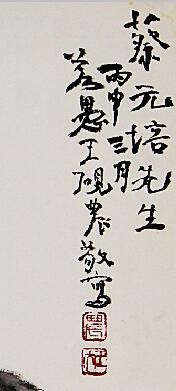 蔡元培先生
丙申三月
若愚王硯農敬寫